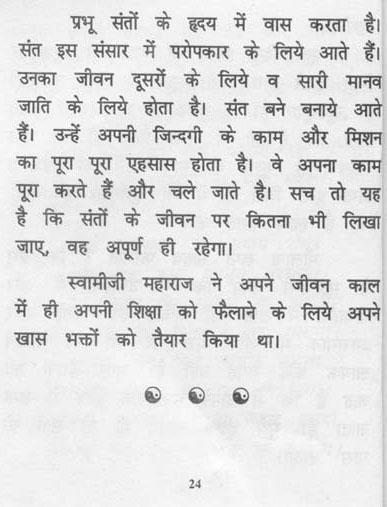 प्रभू संतों के हृदय में वास करता है।
संत इस संसार में परोपकार के लिये आते हैं।
उनका जीवन दूसरों के लिये व सारी मानव
जाति के लिये होता है। संत बने बनाये आते
हैं। उन्हें अपनी जिन्दगी के काम और मिशन
का पूरा पूरा एहसास होता है। वे अपना काम
पूरा करते हैं और चले जाते है। सच तो यह
है कि संतों के जीवन पर कितना भी लिखा
जाए, वह अपूर्ण ही रहेगा।
स्वामीजी महाराज ने अपने जीवन काल
में ही अपनी शिक्षा को फैलाने के लिये अपने
खास भक्तों को तैयार किया था।
24